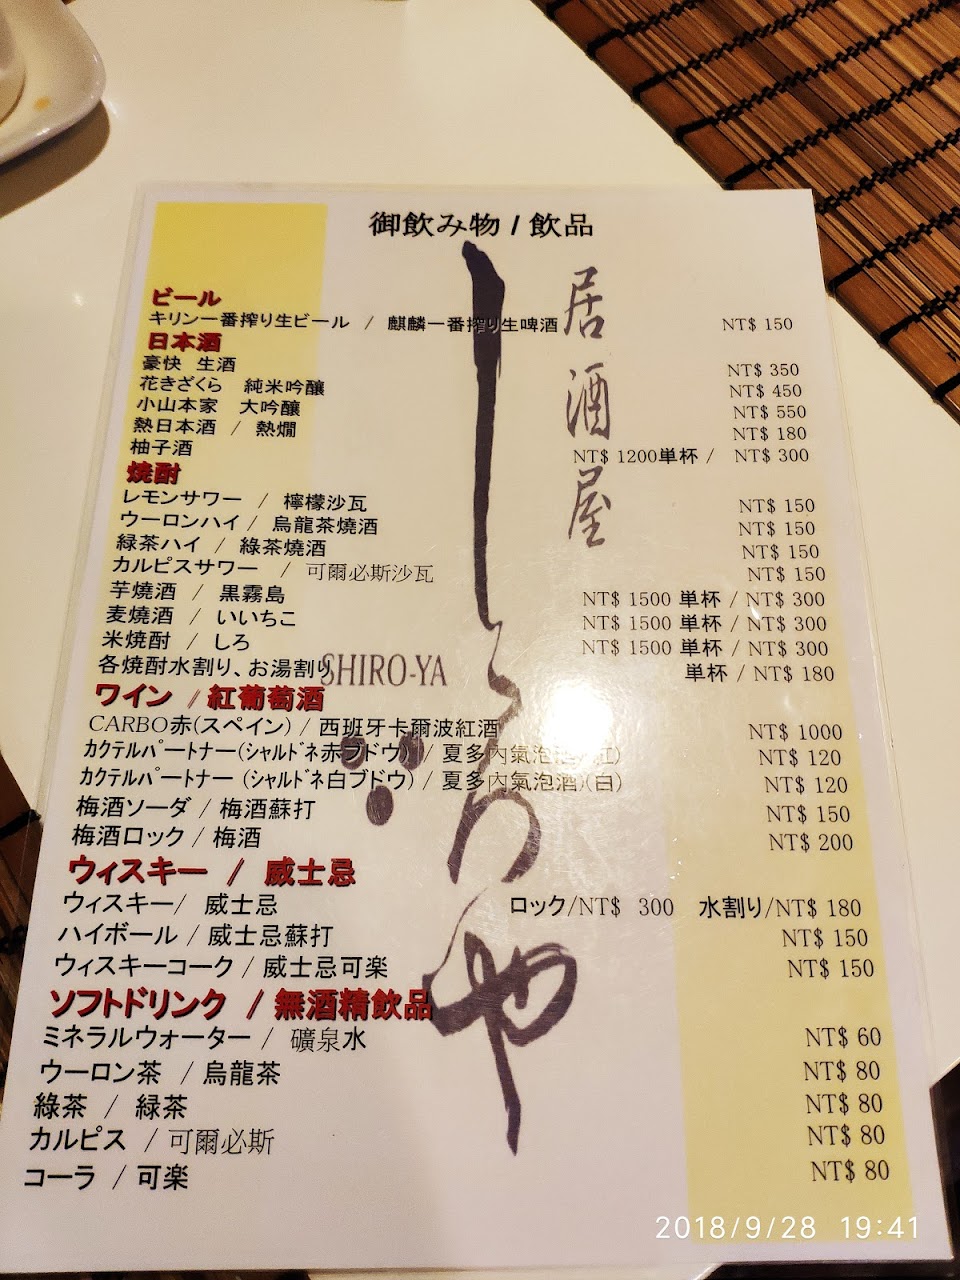 御飲み物 / 飲品
しろや
居酒屋
SHIRO-YA
ビール
キリン一番搾り生ビール / 麒麟一番搾り生啤酒 NT$ 150
日本酒
豪快 生酒 NT$ 350
花きざくら 純米吟醸 NT$ 450
小山本家 大吟醸 NT$ 550
熱日本酒 / 熱燗 NT$ 180
柚子酒 NT$ 1200単杯 / NT$ 300
焼酎
レモンサワー / 檸檬沙瓦 NT$ 150
ウーロンハイ / 烏龍茶燒酒 NT$ 150
緑茶ハイ / 綠茶燒酒 NT$ 150
カルピスサワー / 可爾必斯沙瓦 NT$ 150
芋燒酒 / 黒霧島 NT$ 1500 単杯 / NT$ 300
麦燒酒 / いいちこ NT$ 1500 単杯 / NT$ 300
米焼酎 / しろ NT$ 1500 単杯 / NT$ 300
各焼酎水割り、お湯割り 単杯 / NT$ 180
ワイン / 紅葡萄酒
CARBO赤(スペイン) / 西班牙卡爾波紅酒 NT$ 1000
カクテルパートナー(シャルドネ赤ブドウ) / 夏多內氣泡酒(紅) NT$ 120
カクテルパートナー (シャルドネ白ブドウ) / 夏多內氣泡酒(白) NT$ 120
梅酒ソーダ / 梅酒蘇打 NT$ 150
梅酒ロック / 梅酒 NT$ 200
ウィスキー / 威士忌
ウィスキー/ 威士忌 ロック/NT$ 300 水割り/NT$ 180
ハイボール / 威士忌蘇打 NT$ 150
ウィスキーコーク / 威士忌可楽 NT$ 150
ソフトドリンク / 無酒精飲品
ミネラルウォーター / 礦泉水 NT$ 60
ウーロン茶 / 烏龍茶 NT$ 80
綠茶 / 緑茶 NT$ 80
カルピス / 可爾必斯 NT$ 80
コーラ / 可楽 NT$ 80
2018/9/28 19:41